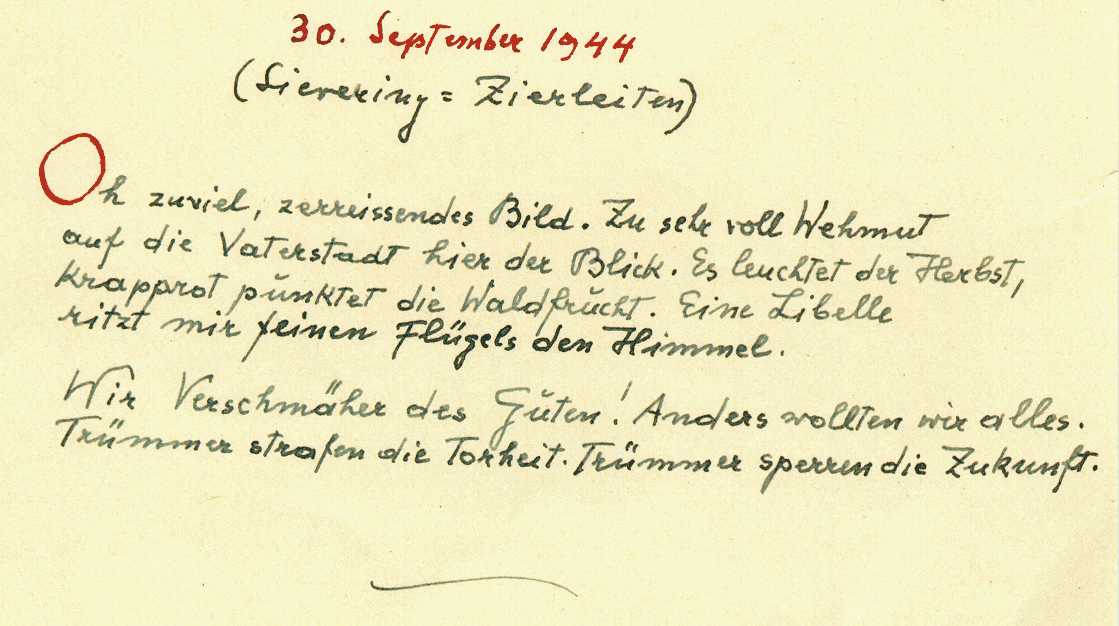 30. September 1944
(Sievering = Zierleiten)
Oh zuviel, zerreissendes Bild. Zu sehr voll Wehmut
auf die Vaterstadt hier der Blick. Es leuchtet der Herbst,
Krapprot punktet die Waldfrucht. Eine Libelle
ritzt mir feinen Flügels den Himmel.
Wir Verschmäher des Guten! Anders wollten wir alles.
Trümmer strafen die Torheit. Trümmer sperren die Zukunft.